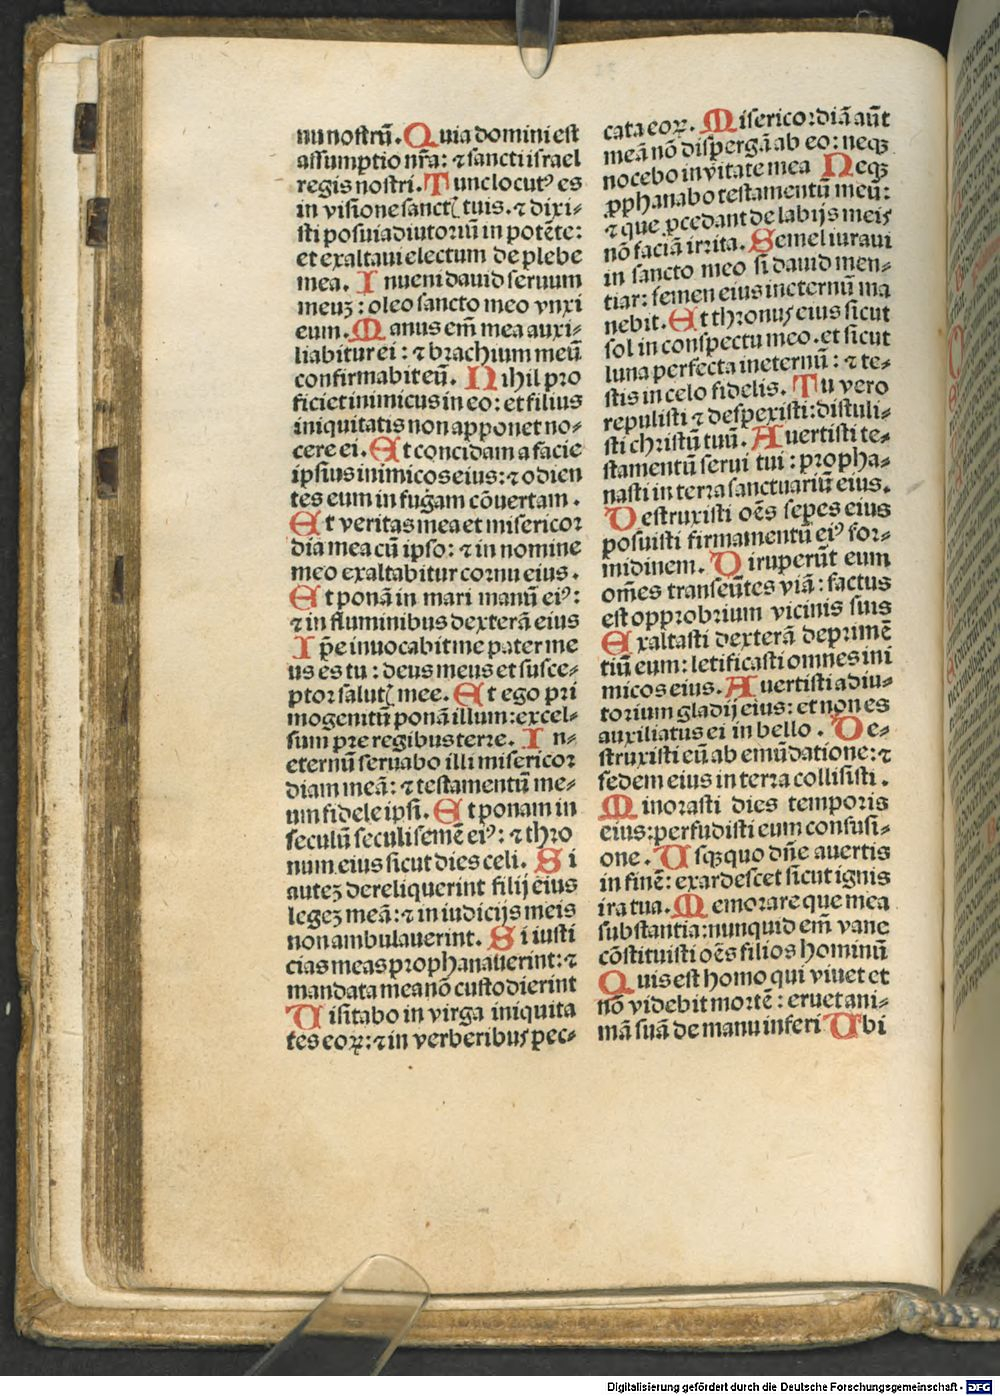 nu nostrū. Quia domini est
assumptio nr̄a: ⁊ sancti israel
regis nostri. Tunc locutꝰ es
in visione sanctꝭ tuis. ⁊ dixi⸗
sti posui adiutoriū in potēte:
et exaltaui electum de plebe
mea. Inueni dauid seruum
meuȝ: oleo sancto meo vnxi
eum. Manus em̄ mea auxi⸗
liabitur ei: ⁊ brachium meū
confirmabit eū. Nihil pro
ficiet inimicus in eo: et filius
iniquitatis non apponet no⸗
cere ei. Et concidam a facie
ipsius inimicos eius: ⁊ odien
tes eum in fugam cōuertam.
Et veritas mea et misericor
dia mea cū ipso: ⁊ in nomine
meo exaltabitur cornu eius.
Et ponā in mari manū eiꝰ:
⁊ in fluminibus dexterā eius
Ip̄e inuocabit me pater me
us es tu: deus meus et susce⸗
ptor salutꝭ mee. Et ego pri
mogenitū ponā illum: excel⸗
sum pre regibus terre. In⸗
eternū seruabo illi misericor
diam meā: ⁊ testamentū me⸗
um fidele ipsi. Et ponam in
seculū seculi semē eiꝰ: ⁊ thro
num eius sicut dies celi. Si
auteȝ dereliquerint filij eius
legeȝ meā: ⁊ in iudicijs meis
non ambulauerint. Si iusti
cias meas prophanauerint: ⁊
mandata mea nō custodierint
Visitabo in virga iniquita
tes eoꝝ: ⁊ in verberibus pec⸗
cata eoꝝ. Misericordiā aūt
meā nō dispergā ab eo: neqꝫ
nocebo in vitate mea Neqꝫ
ꝓphanabo testamentū meū:
⁊ que ꝓcedant de labijs meis
nō faciā irrita. Semel iuraui
in sancto meo si dauid men⸗
tiar: semen eius in eternū ma
nebit. Et thronus eius sicut
sol in conspectu meo. et sicut
luna perfecta in eternū: ⁊ te⸗
stis in celo fidelis. Tu vero
repulisti ⁊ despexisti: distuli⸗
sti christū tuū. Auertisti te⸗
stamentū serui tui: propha⸗
nasti in terra sanctuariū eius.
Destruxisti oēs sepes eius
posuisti firmamentū eiꝰ for⸗
midinem. Diruperūt eum
om̄es transeūtes viā: factus
est opprobrium vicinis suis
Exaltasti dexterā deprimē
tiū eum: letificasti omnes ini
micos eius. Auertisti adiu⸗
torium gladij eius: et non es
auxiliatus ei in bello. De⸗
struxisti eū ab emūdatione: ⁊
sedem eius in terra collisisti.
Minorasti dies temporis
eius: perfudisti eum confusi⸗
one. Vsqꝫquo dn̄e auertis
in finē: exardescet sicut ignis
ira tua. Memorare que mea
substantia: nunquid em̄ vane
cōstituisti oēs filios hominū
Quis est homo qui viuet et
nō videbit mortē: eruet ani⸗
mā suā de manu inferi Vbi
Digitalisierung gefördert durch die Deutsche Forschungsgemeinschaft - DFG